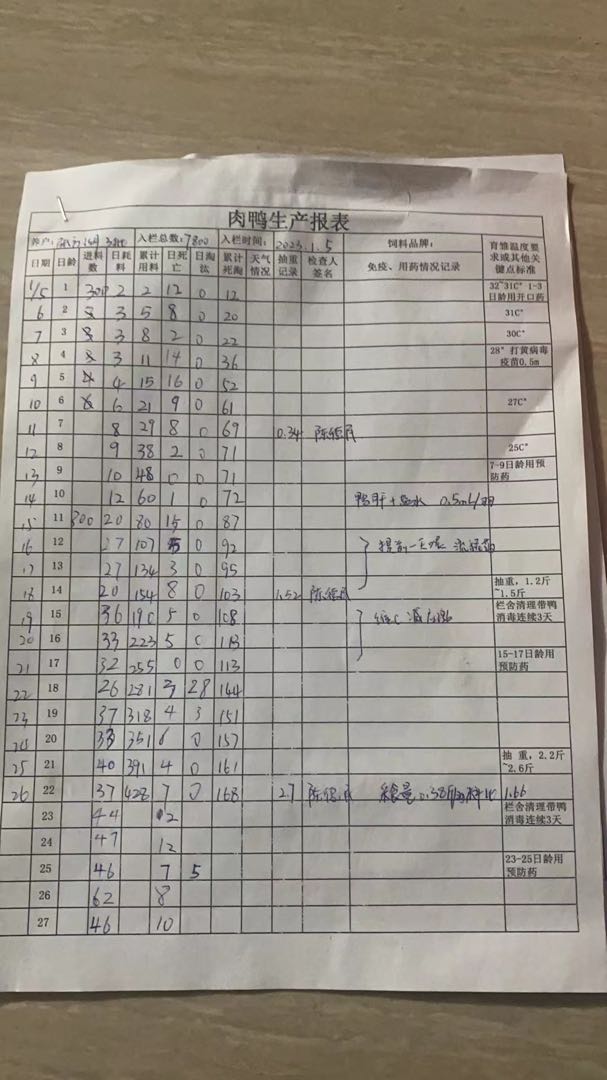 肉鸭生产报表
养户: 入栏总数:7800 入栏时间: 2023.1.5 饲料品牌: 育雏温度要求或其他关键点标准
日期 日龄 进料数 日耗料 累计用料 日死亡 日淘汰 累计死淘 天气情况 抽重记录 检查人签名 免疫、用药情况记录
1/5 1 300 2 2 12 0 12 32~31C° 1-3日龄用开口药
6 2 3 5 8 0 20 31C°
7 3 3 8 2 0 22 30C°
8 4 3 11 14 0 36 28° 打黄病毒疫苗0.5m
9 5 4 15 16 0 52
10 6 6 21 9 0 61 27C°
11 7 8 29 8 0 69 0.34
12 8 9 38 2 0 71 25C°
13 9 10 48 0 0 71 7-9日龄用预防药
14 10 12 60 1 0 72 鸭肝+ 0.5ml/羽
15 11 300 20 80 15 0 87
16 12 27 107 5 0 92 提前一天
17 13 27 134 3 0 95
18 14 20 154 8 0 103 1.52 抽重,1.2斤~1.5斤
19 15 36 190 5 0 108 栏舍清理带鸭消毒连续3天
20 16 33 223 5 0 113
21 17 32 255 0 0 113 15-17日龄用预防药
22 18 26 281 3 28 144
23 19 37 318 4 3 151
24 20 33 351 6 0 157
25 21 40 391 4 0 161 抽 重,2.2斤~2.6斤
26 22 37 428 7 0 168 27 采食量0.38斤 料比 1.66
23 44 12 栏舍清理带鸭消毒连续3天
24 47 12
25 46 7 5 23-25日龄用预防药
26 62 8
27 46 10